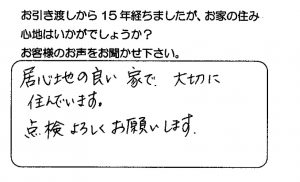 お引き渡しから15年経ちましたが、お家の住み
心地はいかがでしょうか?
お客様のお声をお聞かせ下さい。
居心地の良い家で大切に
住んでいます。
点検よろしくお願いします.